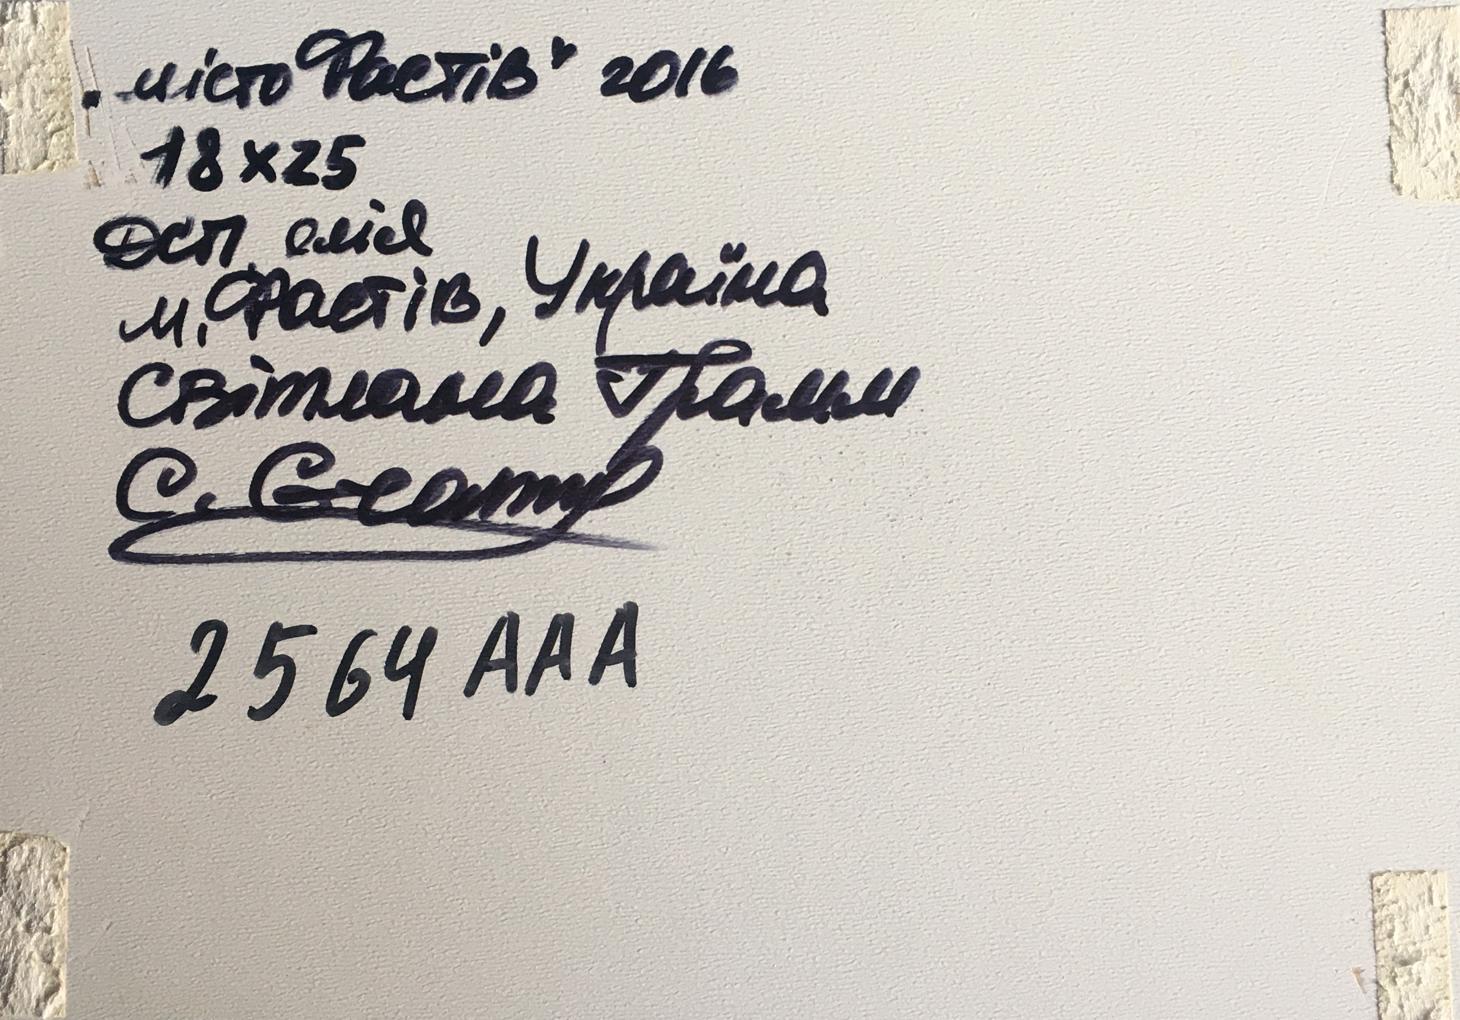 „місто Фастів" 2016
18x25
ДСП, олія
м. Фастів, Україна
Світлана
С.
2564 AAA